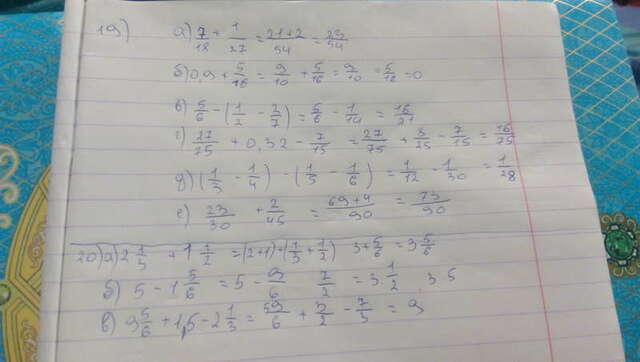 19) а) 7/18 + 1/27 = 21+2/54 = 23/54
б) 0,9 + 5/16 = 9/10 + 5/16 = 9/10 = 5/18 = 0
в) 5/6 - (1/2 - 2/7) = 5/6 - 1/14 = 16/21
г) 27/75 + 0,32 - 7/15 = 27/75 + 8/25 - 7/15 = 16/75
д) (1/3 - 1/4) - (1/5 - 1/6) = 1/12 - 1/30 = 1/28
е) 23/30 + 2/45 = 69+4/90 = 73/90
20) а) 2 1/3 + 1 1/2 = (2+1)+(1/3 + 1/2) 3+5/6 = 3 5/6
б) 5 - 1 5/6 = 5 - 9/6 7/2 = 3 1/2 3,5
в) 9 5/6 + 1,5 - 2 1/3 = 59/6 + 3/2 - 7/3 = 9